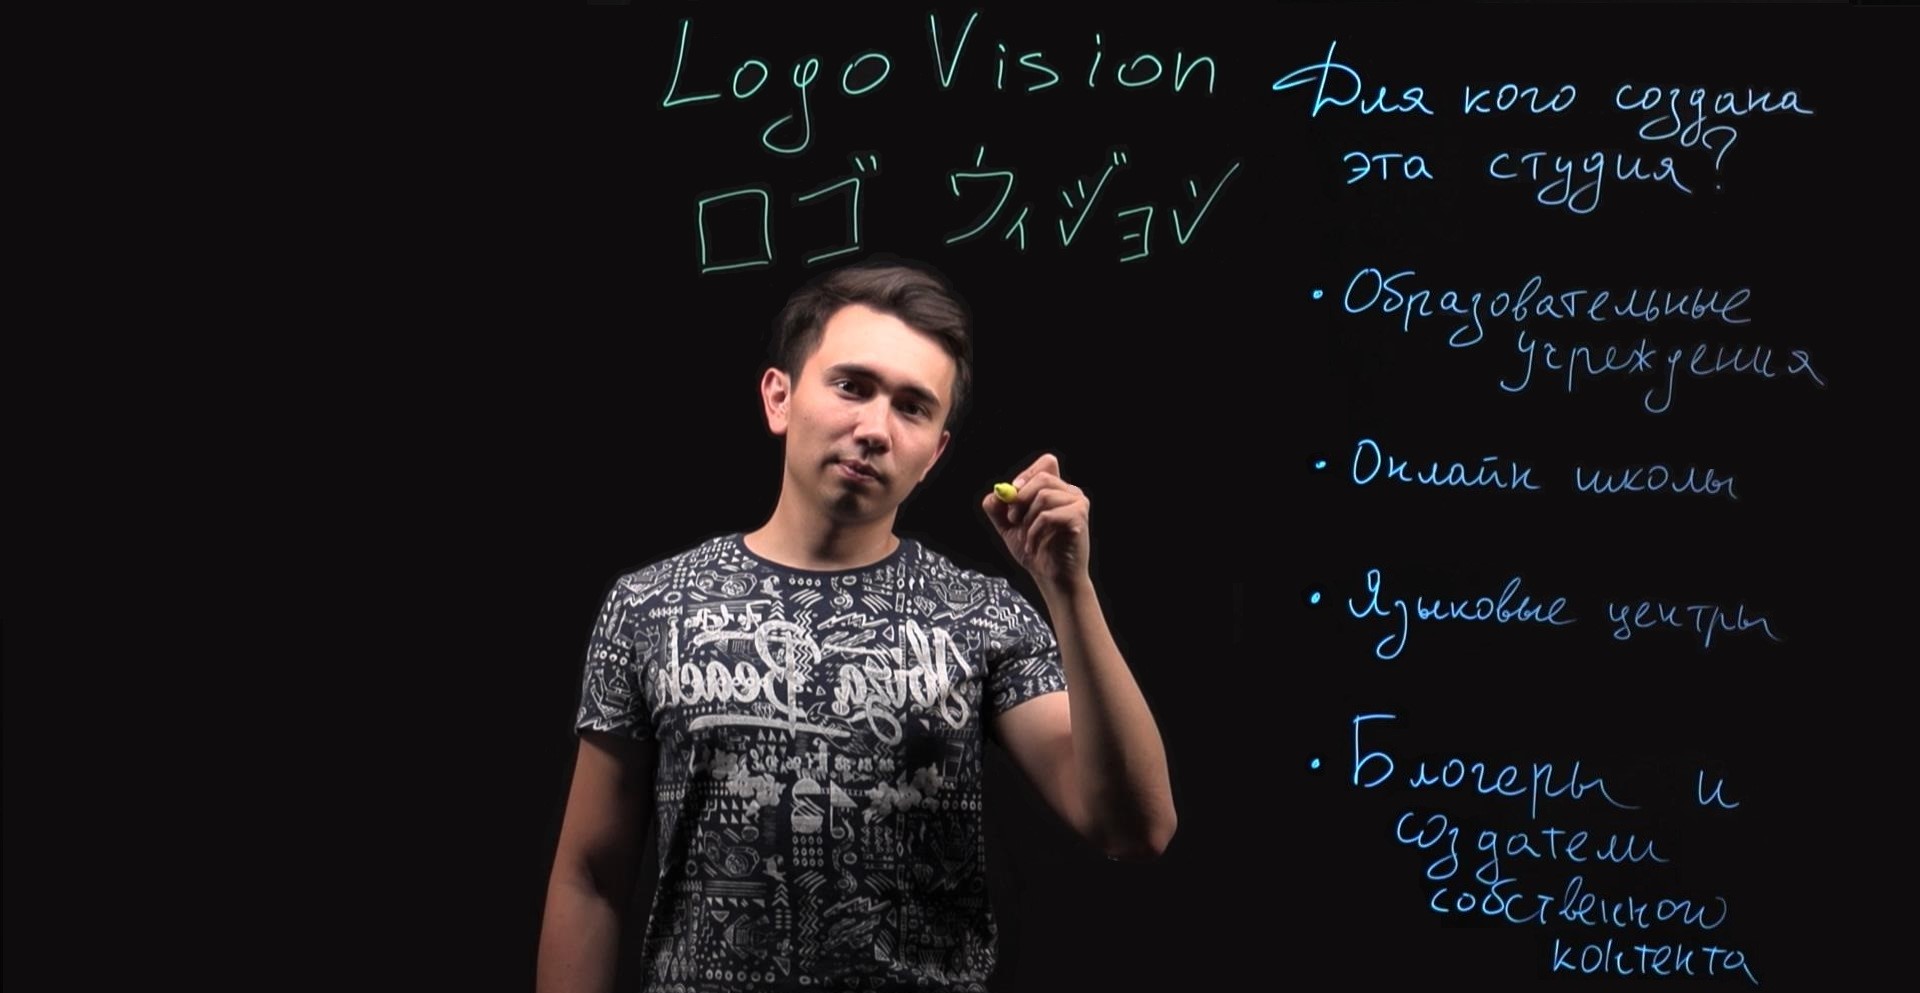 LogoVision
ロゴ ウィジョン
Для кого создана
эта студия?
• Образовательные
учреждения
• Онлайн школы
• Языковые центры
• Блогеры и
создатели
собственного
контента
Ibiza Beach